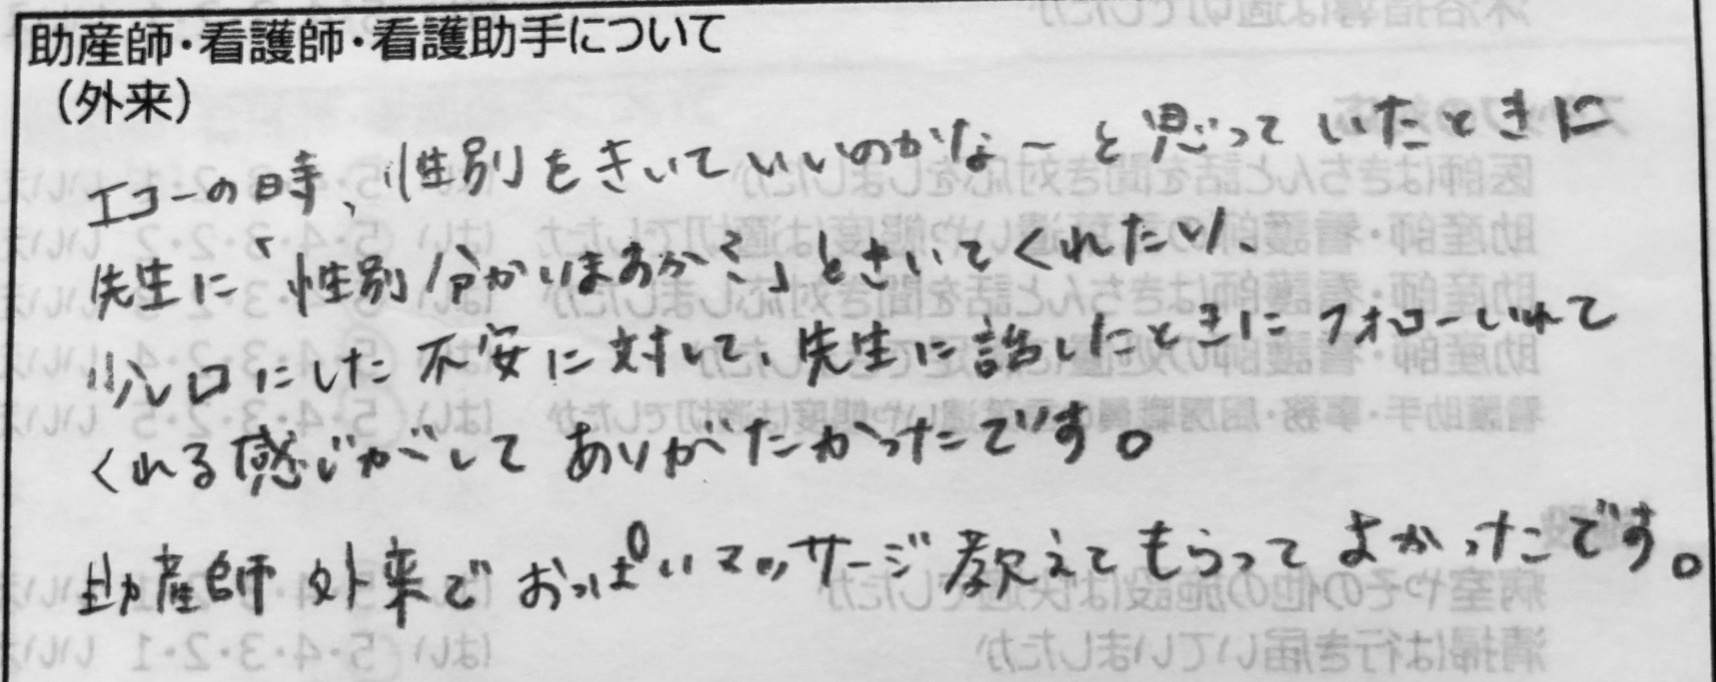 助産師・看護師・看護助手について
（外来）
エコーの時、性別をきいていいのかな〜と思っていたときに
先生に「性別分かりますか?」ときいてくれたり、
少し口にした不安に対して、先生に話したときにフォローいれて
くれる感じがして ありがたかったです。
助産師外来で おっぱいマッサージ教えてもらって よかったです。